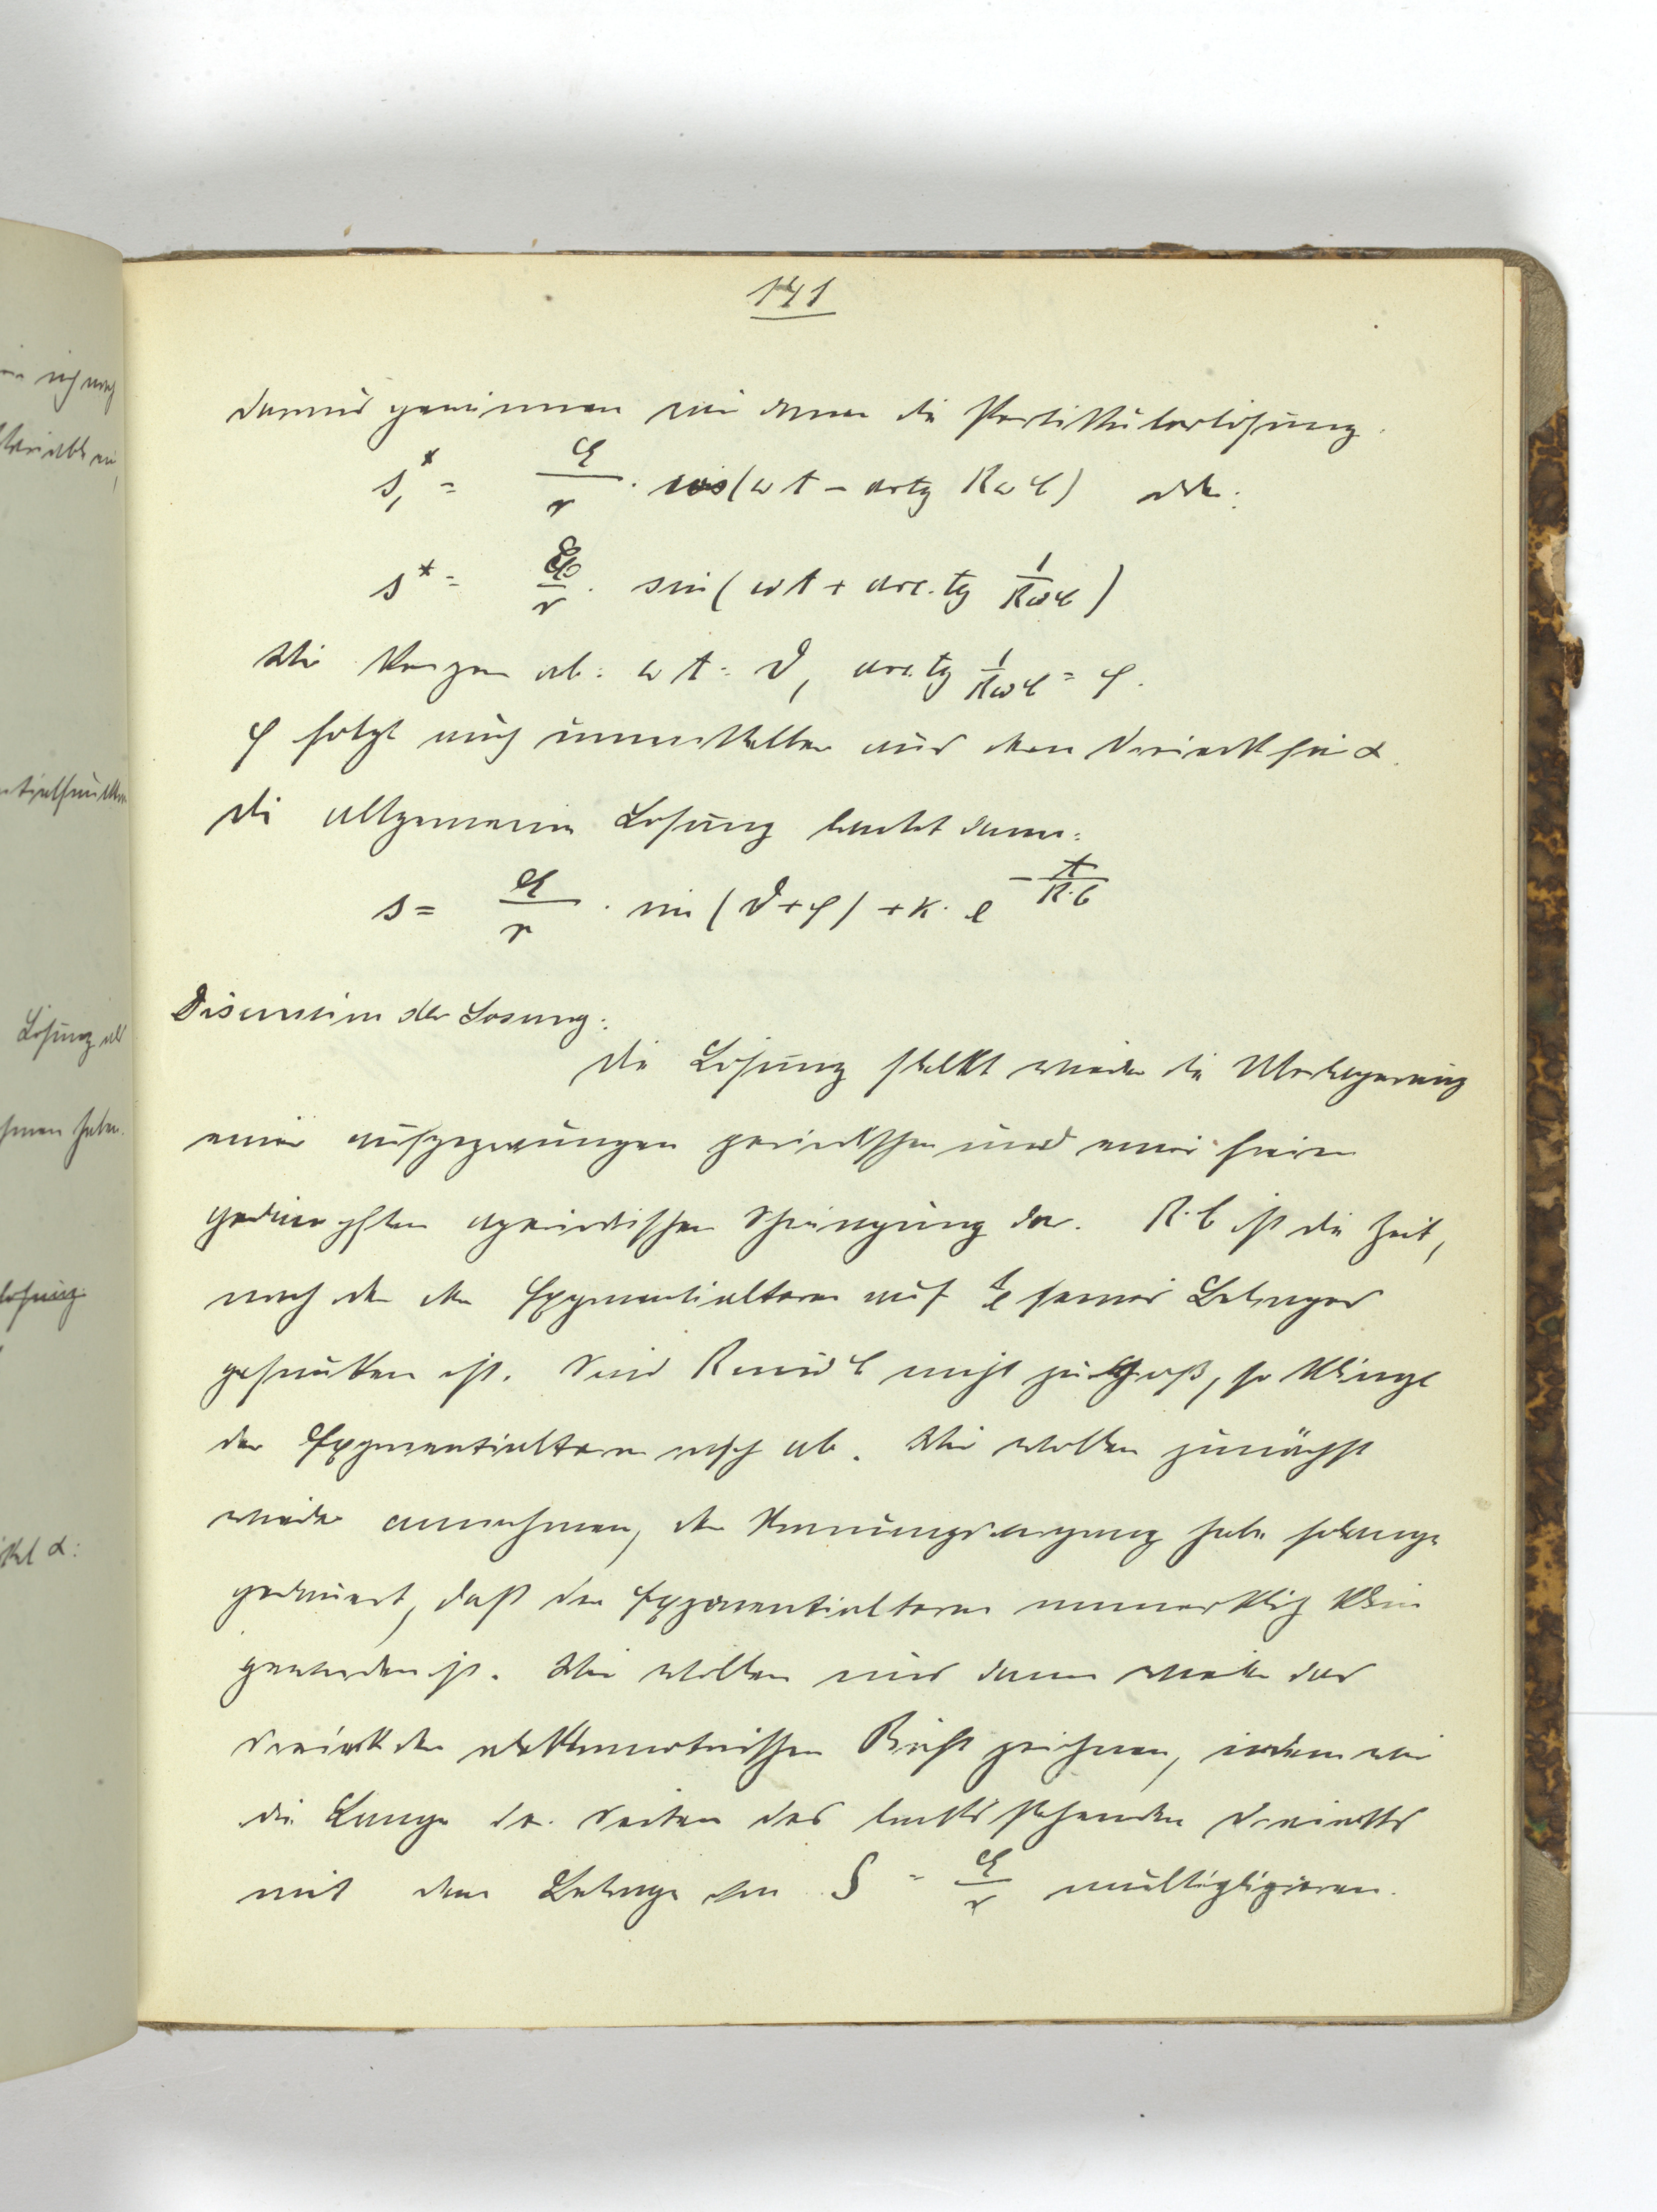 141
daraus gewinnen wir dann die Partikulärlösung.
s₁* = 𝔈/r · cos (ωt − arctg RωC) oder:
s* = 𝔈/r · sin (ωt + arc.tg 1/RωC)
Wir kürzen ab: ωt = ϑ, arc.tg 1/RωC = φ.
φ folgt auch unmittelbar aus dem Dreieck für α.
Die allgemeine Lösung lautet dann:
s = 𝔈/r · sin (ϑ+φ) + K · e^(−t/R·C)
Discussion der Lösung:
Die Lösung stellt wieder die Überlagerung
einer aufgezwungenen periodischen und einer freien
gedämpften aperiodischen Schwingung dar. R·C ist die Zeit,
nach der der Exponentialterm auf 1/e seines Betrages
gesunken ist. Sind R und C nicht zu groß, so klingt
der Exponentialterm rasch ab. Wir wollen zunächst
wieder annehmen, der Vorgang habe solange
gedauert, daß der Exponentialterm unmerklich klein
geworden ist. Wir wollen uns dann wieder das
Dreieck der zeichnen, indem wir
die Länge der Seiten des links stehenden Dreiecks
mit dem Betrage von S = 𝔈/r multiplizieren.
Lösung
haben.
lösung
α: